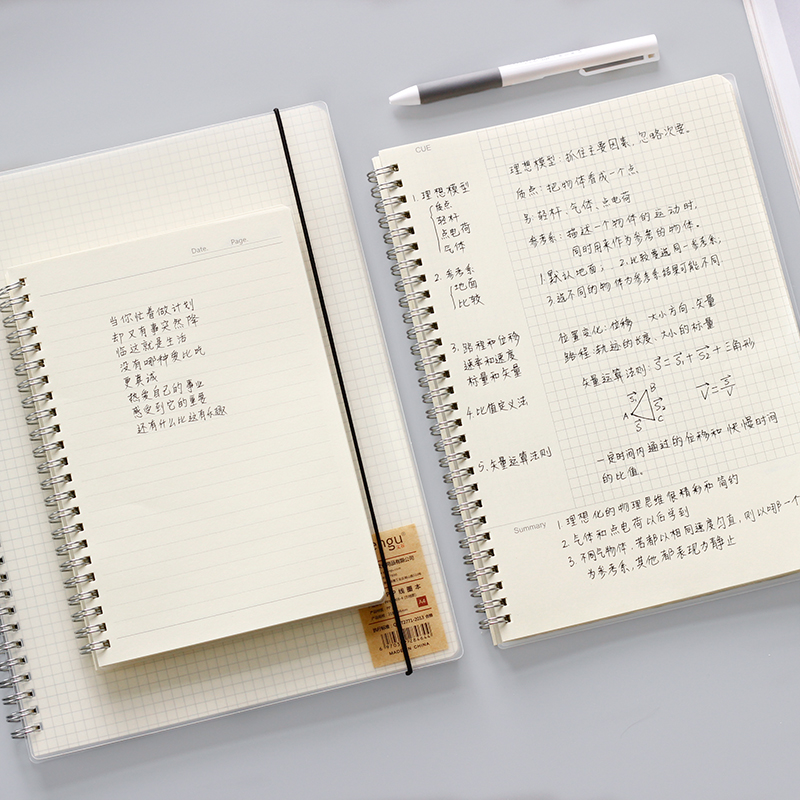 Date.
Page.
当你忙着做计划
却又有事突然降
临这就是生活
没有哪种爱比吃
更真诚
热爱自己的事业
感受到它的重量
还有什么比这有乐趣
engu
A4
MADE IN CHINA
CUE
1. 理想模型
质点
轻杆
点电荷
气体
2. 参考系
地面
比较
3. 路程和位移
速率和速度
标量和矢量
4. 比值定义法
5. 矢量运算法则
理想模型: 抓住主要因素, 忽略次要。
质点: 把物体看成一个点
轻杆、气体、点电荷
参考系: 描述一个物体的运动时,
同时用来作为参考的物体。
1. 默认地面; 2. 比较量选同一参考系,
3. 选不同的物体为参考系结果可能不同
位置变化: 位移 大小方向、矢量
路程: 轨迹的长度. 大小的标量
矢量运算法则: S = S₁ + S₂ + 三角形
B
S₁ S₂
A S C
一定时间内通过的位移和快慢时间
的比值。
Summary
1. 理想化的物理思维很精彩和简约
2. 气体和点电荷以后学到
3. 不同气物体, 若都以相同速度匀直, 则以哪一个
为参考系, 其他都表现为静止